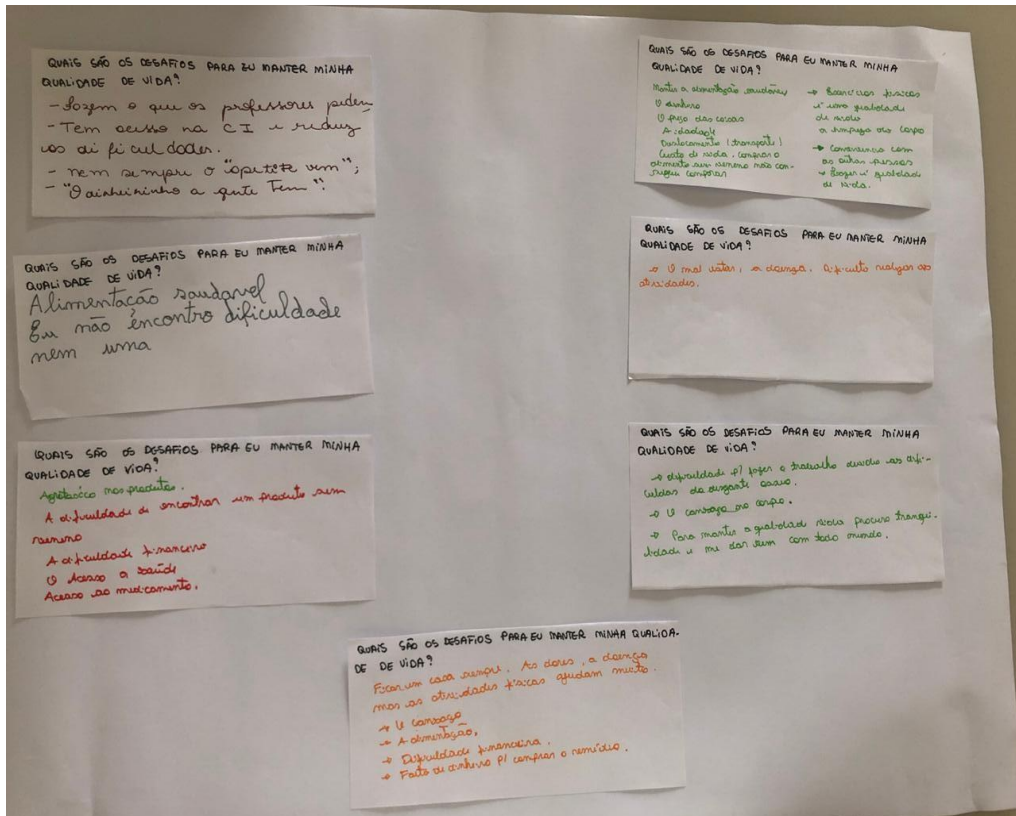 QUAIS SÃO OS DESAFIOS PARA EU MANTER MINHA
QUALIDADE DE VIDA?
- Fazem o que os professores pedem
- Tem acesso na CI e reduz
as dificuldades.
- nem sempre o "apetite vem";
- "O dinheirinho a gente Tem".
QUAIS SÃO OS DESAFIOS PARA EU MANTER MINHA
QUALIDADE DE VIDA?
Alimentacão saudavel
Eu não encontro dificuldade
nem uma
QUAIS SÃO OS DESAFIOS PARA EU MANTER MINHA
QUALIDADE DE VIDA?
Agrotóxico nos produtos.
A dificuldade de encontrar um produto sem
veneno
A dificuldade financeiro
O Acesso a saúde
Acesso ao medicamento.
QUAIS SÃO OS DESAFIOS PARA EU MANTER MINHA
QUALIDADE DE VIDA?
Manter a alimentação saudável
O dinheiro
O preço das coisas
A idade
Deslocamento (transporte)
Custo de vida. comprar o
alimento sem veneno não con-
segue comprar
→ Exercícios físicos
é uma qualidade
de vida
a limpeza do corpo
→ Convivência com
as outras pessoas
→ Lazer é qualidade
de vida.
QUAIS SÃO OS DESAFIOS PARA EU MANTER MINHA
QUALIDADE DE VIDA?
→ O mal estar, a doença. dificulta realizar as
atividades.
QUAIS SÃO OS DESAFIOS PARA EU MANTER MINHA
QUALIDADE DE VIDA?
→ dificuldade p/ fazer o trabalho devido as difi-
culdas do desgaste
→ O cansaço no corpo.
→ Para manter a qualidad vida procuro tranqui-
lidade e me dar bem com todo mundo.
QUAIS SÃO OS DESAFIOS PARA EU MANTER MINHA QUALIDA-
DE DE VIDA?
Ficar em casa sempre. As dores, a doença
mas as atividades físicas ajudam muito.
→ O cansaço
→ A alimentação.
→ Dificuldade financeira.
→ Falta de dinheiro p/ comprar o remédio.